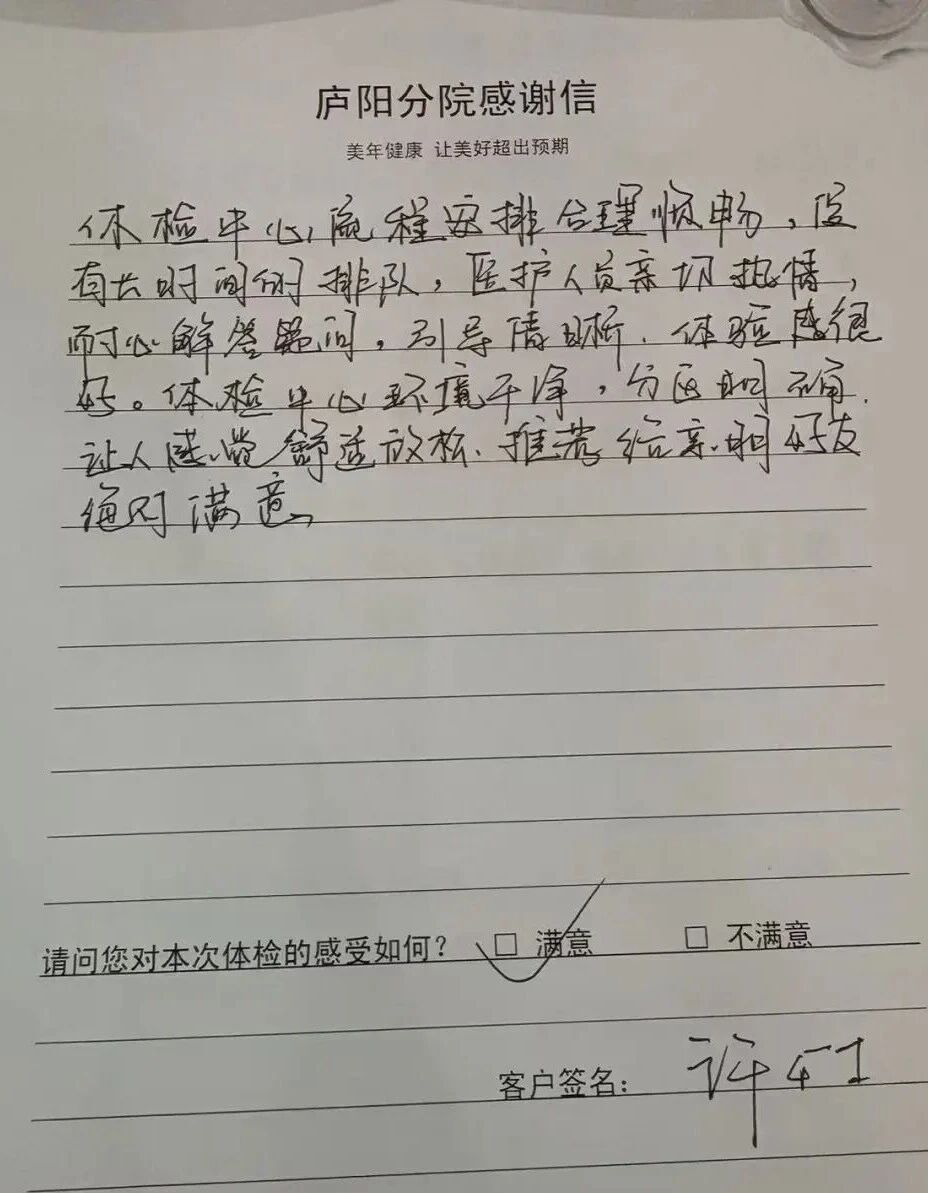 庐阳分院感谢信
美年健康 让美好超出预期
体检中心流程安排合理顺畅，没
有长时间的排队，医护人员亲切热情，
耐心解答疑问，引导清晰.体验感很
好。体检中心环境干净，分区明确.
让人感觉舒适放松、推荐给亲朋好友
绝对满意
请问您对本次体检的感受如何？ □ 满意 □ 不满意
客户签名： 许红